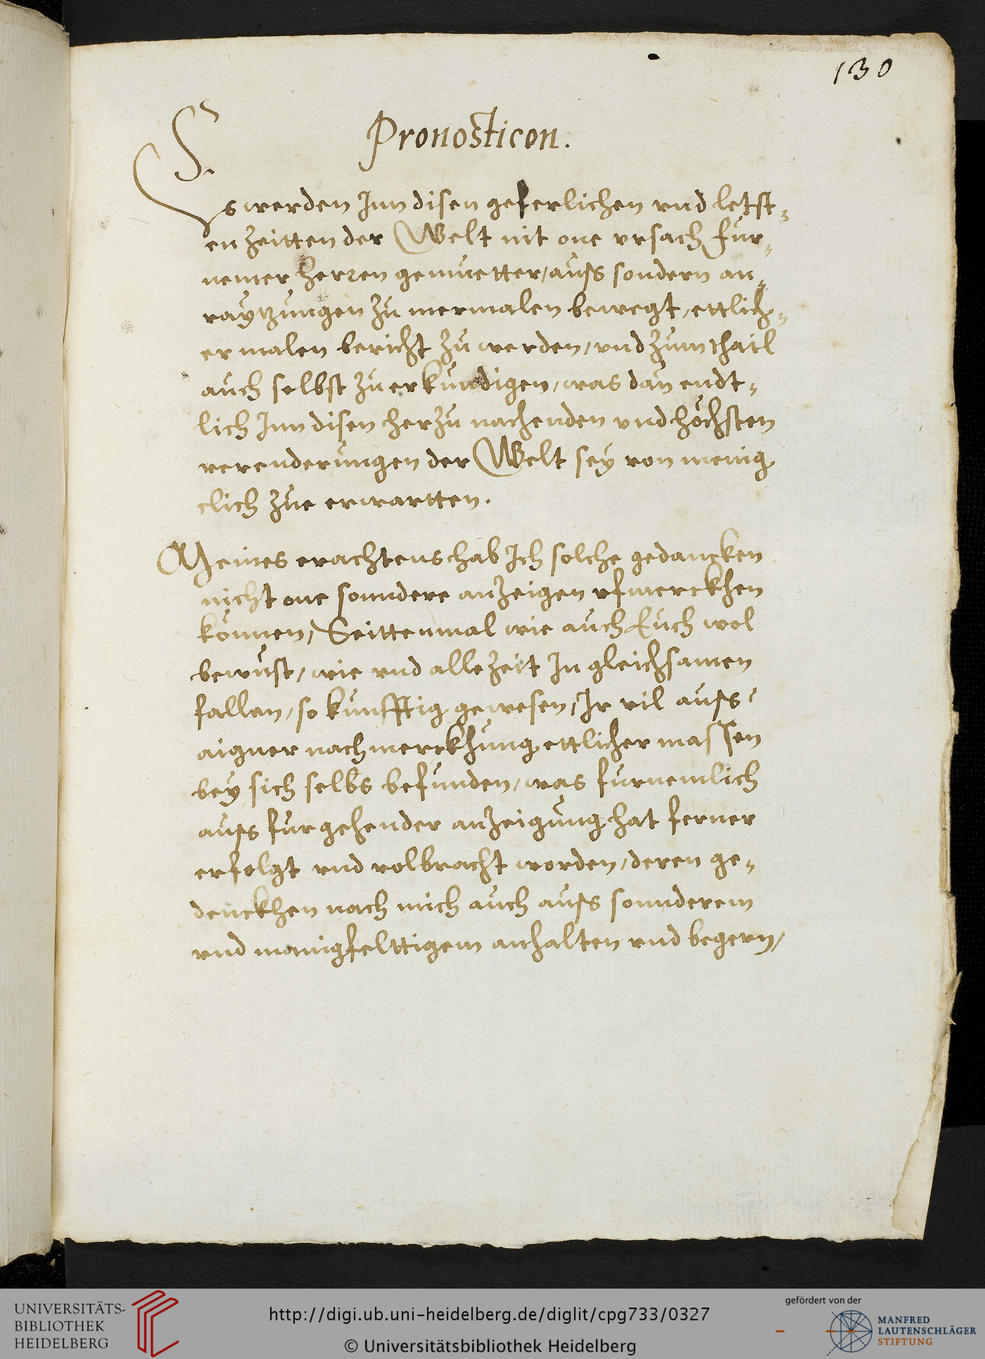 130
S.
Pronosticon.
Es werden Inn disen geferlichen vnd letst-
en Zeitten der Welt nit one vrsach fur-
nemer herren gemuetter/ auss sondern an-
raytzungen zu mermalen bewegt, ettlich-
er malen bericht zu werden/ vnd zum thail
auch selbst zu erkundigen, was dan endt-
lich Inn disen herzu nachenden vnd höchsten
verenderungen der Welt sey von menig
clich zue erwartten.
Meines erachtens hab Ich solche gedancken
nicht one sonndere anzeigen vfmerckhen
können/ Seittenmal wie auch Euch wol
bewust/ wie vnd alle Zeit In gleichsamen
fallen, so kunfftig gewesen, Ir vil auss
aigner nachmerckhung ettlicher massen
bey sich selbs befunden, was furnemlich
auss furgehender anzeigung hat ferner
erfolgt vnd volbracht worden, deren ge-
denckhen nach mich auch auss sonnderem
vnd manigfelttigem anhalten vnd begern/
UNIVERSITÄTS-
BIBLIOTHEK
HEIDELBERG
http://digi.ub.uni-heidelberg.de/diglit/cpg733/0327
© Universitätsbibliothek Heidelberg
gefördert von der
MANFRED
LAUTENSCHLÄGER
STIFTUNG